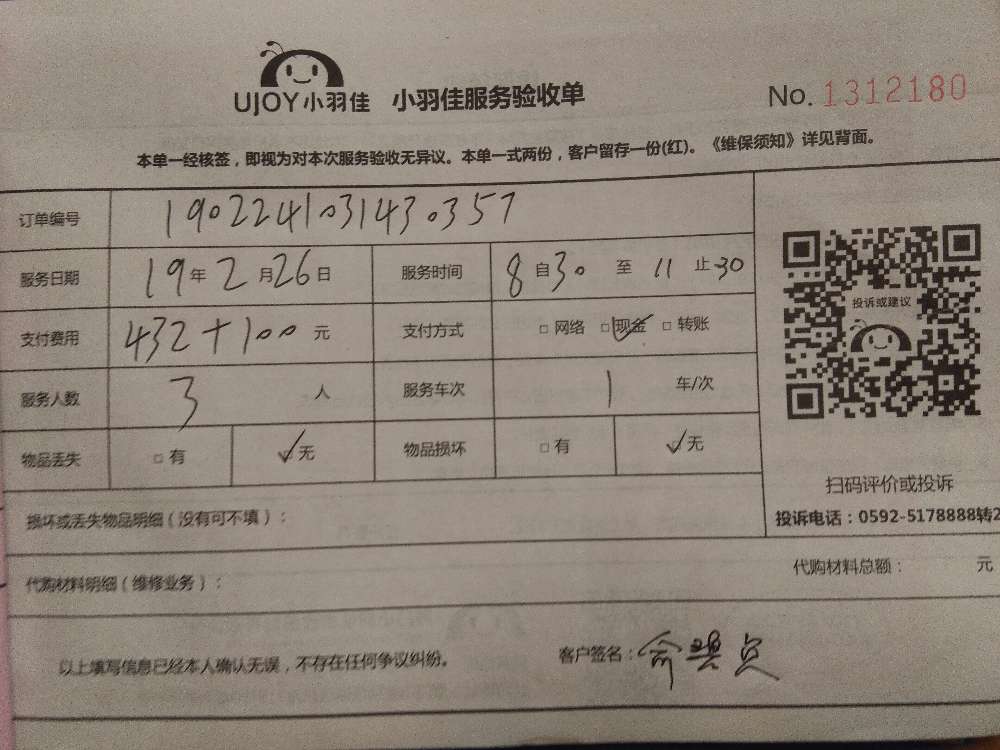 UJOY小羽佳 小羽佳服务验收单 No. 1312180
本单一经核签，即视为对本次服务验收无异议。本单一式两份，客户留存一份(红)。《维保须知》详见背面。
订单编号 1902241031430357
服务日期 19年2月26日 服务时间 8自30至11止30
支付费用 432+100元 支付方式 □网络 □现金 □转账
服务人数 3人 服务车次 1车/次
物品丢失 □有 ✓无 物品损坏 □有 ✓无
投诉或建议
扫码评价或投诉
投诉电话：0592-5178888转2
损坏或丢失物品明细（没有可不填）：
代购材料明细（维修业务）： 代购材料总额： 元
以上填写信息已经本人确认无误，不存在任何争议纠纷。 客户签名：